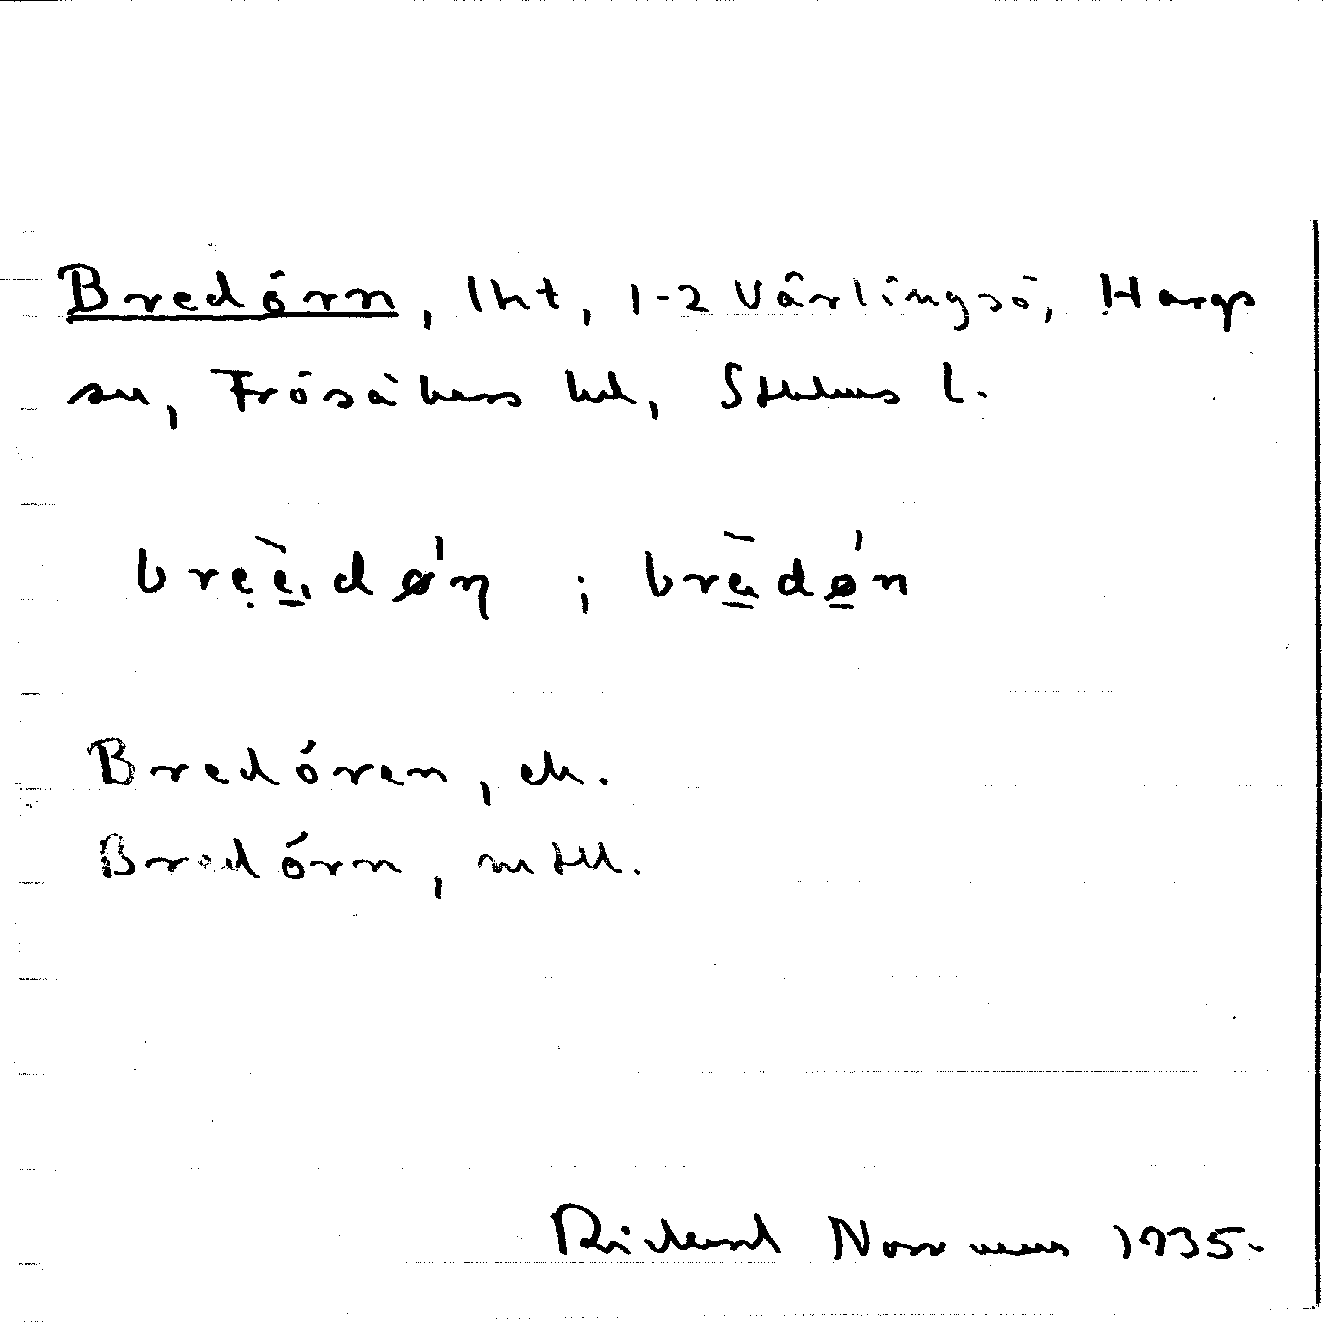 Bredörn, lht, 1-2 Vårlingsö, Hargs
sn, Frösåkers hd, Sthlms l.
bre̞è̠dǿɳ ; brè̠dǿ̠n
Bredören, ek.
Bredörn, mtll.
Rickard Norrmans 1935.